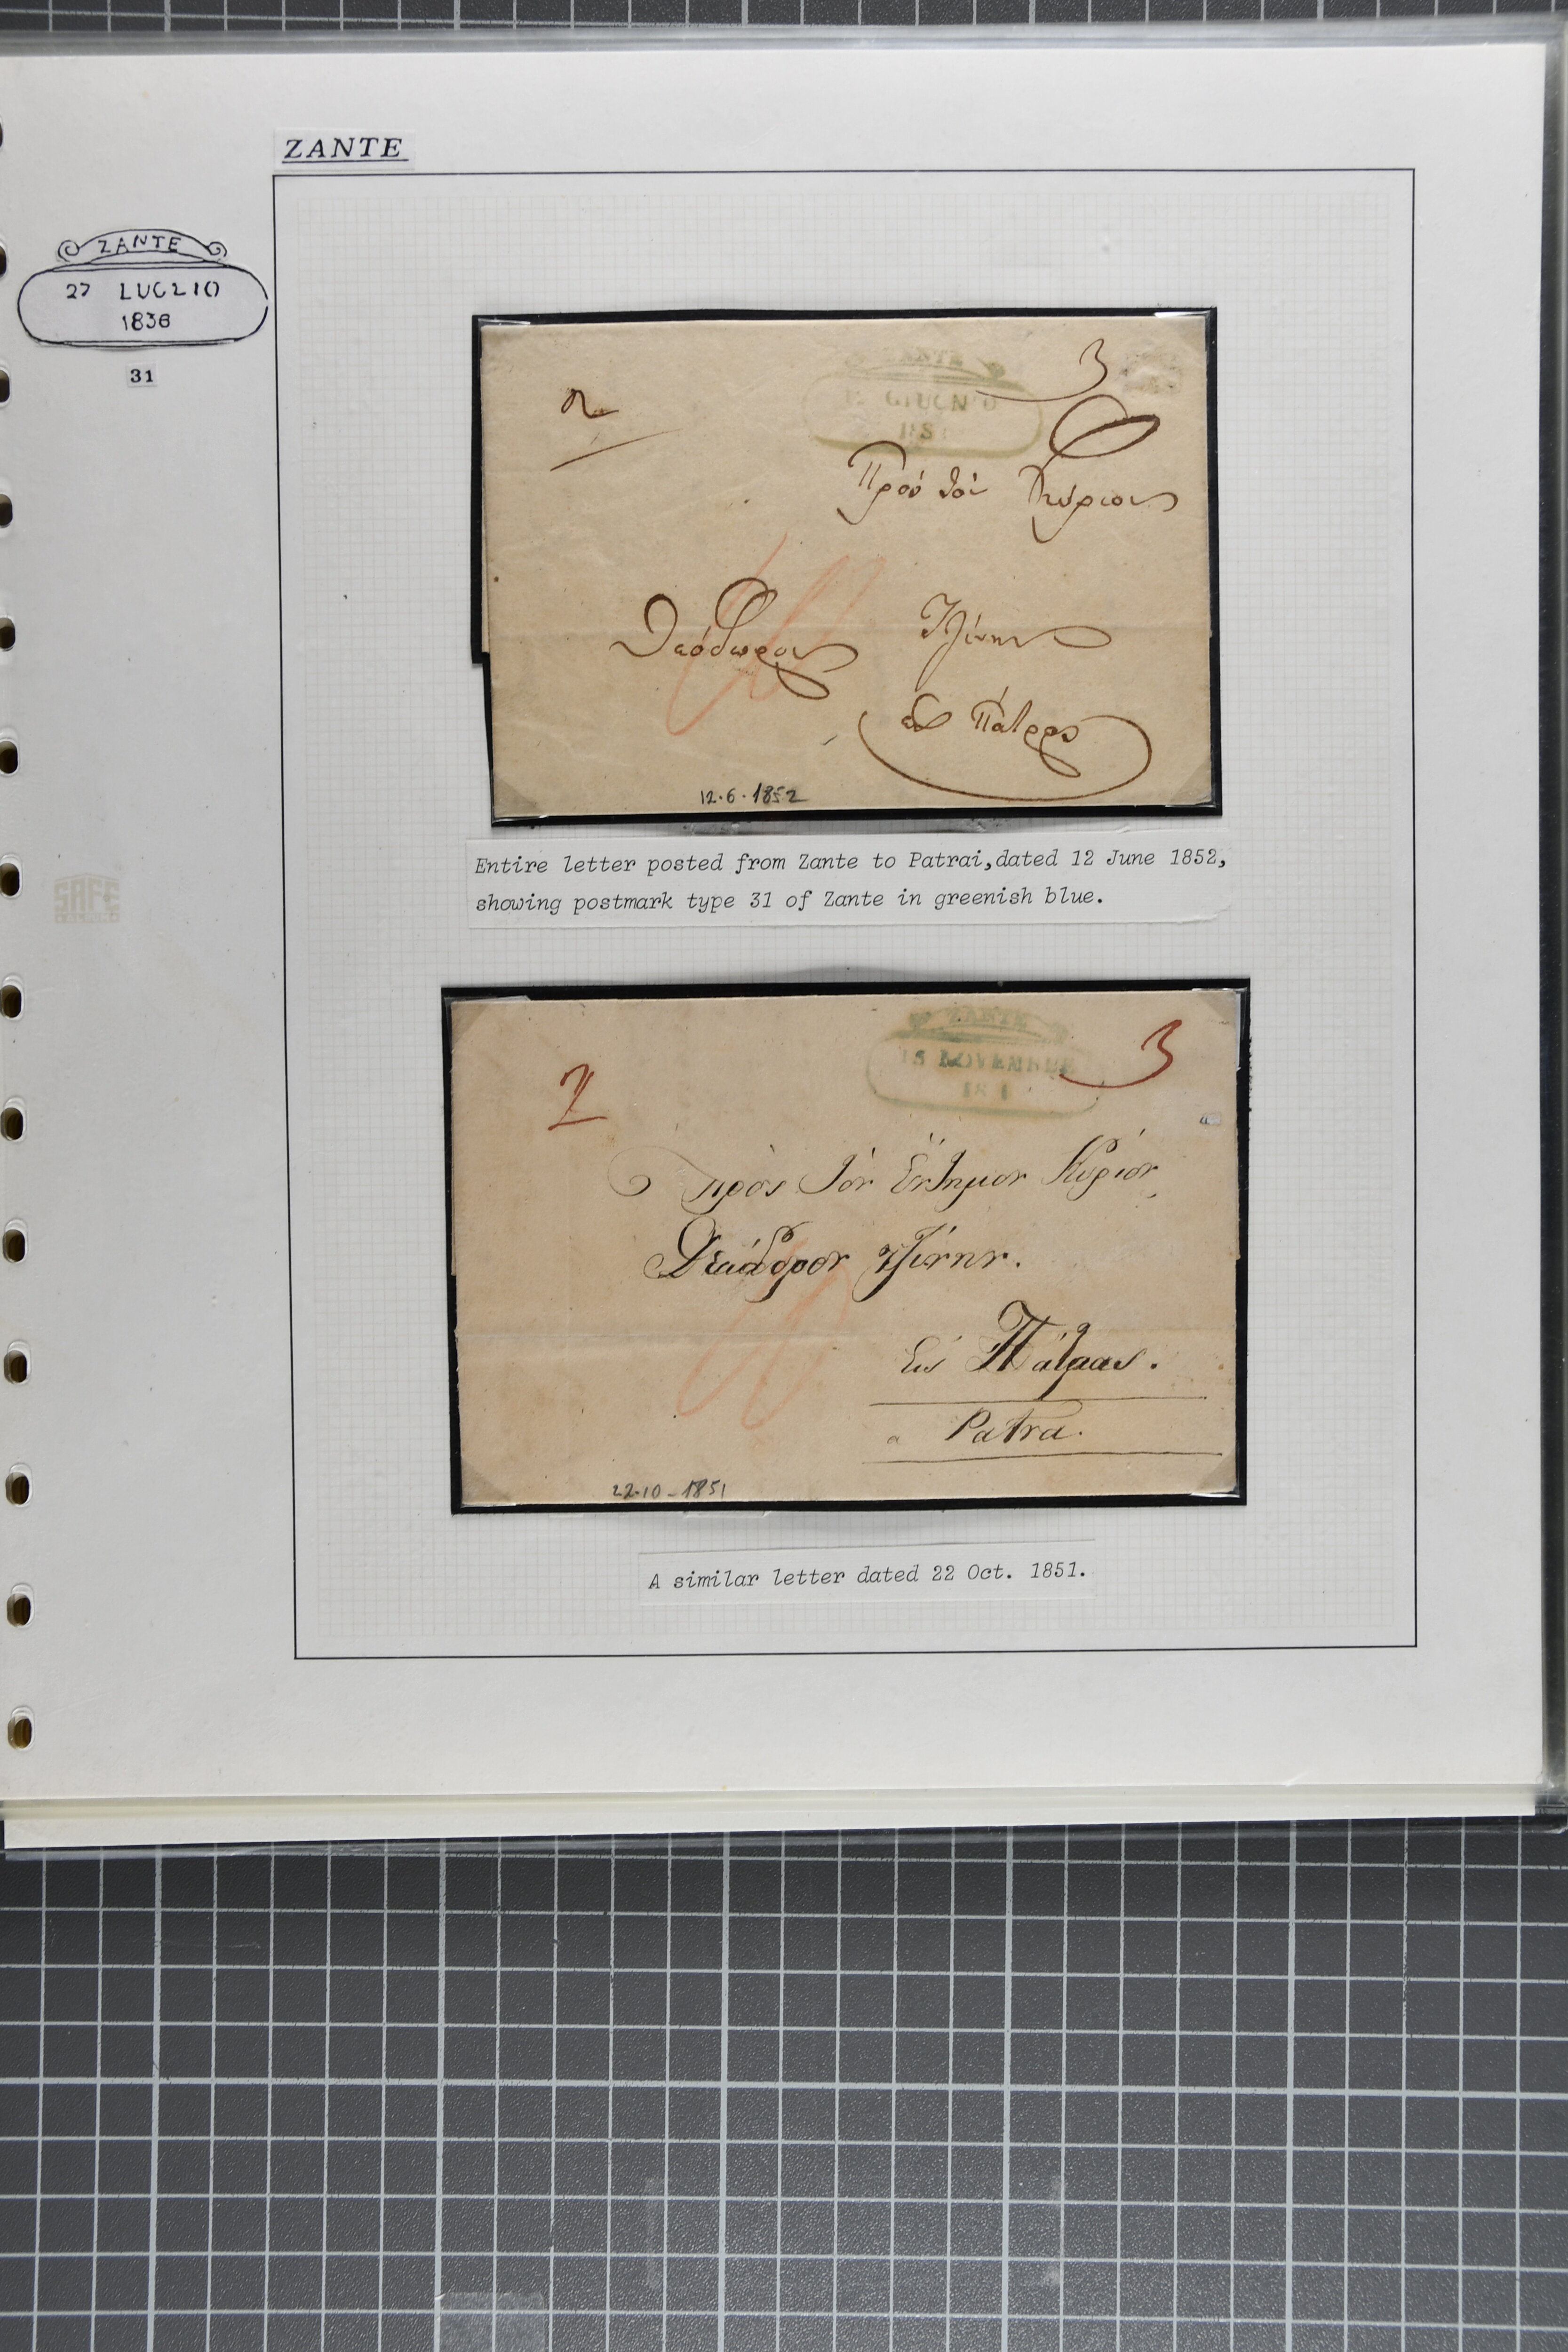 ZANTE
ZANTE
27 LUGLIO
1836
31
ZANTE
12 GIUGNO
2
3
Πρὸς τὸν Κύριον
Θεόδωρον Τζίνην
εἰς Πάτρας
12·6·1852
Entire letter posted from Zante to Patrai,dated 12 June 1852,
showing postmark type 31 of Zante in greenish blue.
SAFE
ZANTE
15 NOVEMBRE
2
3
Πρὸς τὸν Ἔντημον Κύριον
τζίνην.
Εἰς Πάτρας.
a Patra.
22·10-1851
A similar letter dated 22 Oct. 1851.